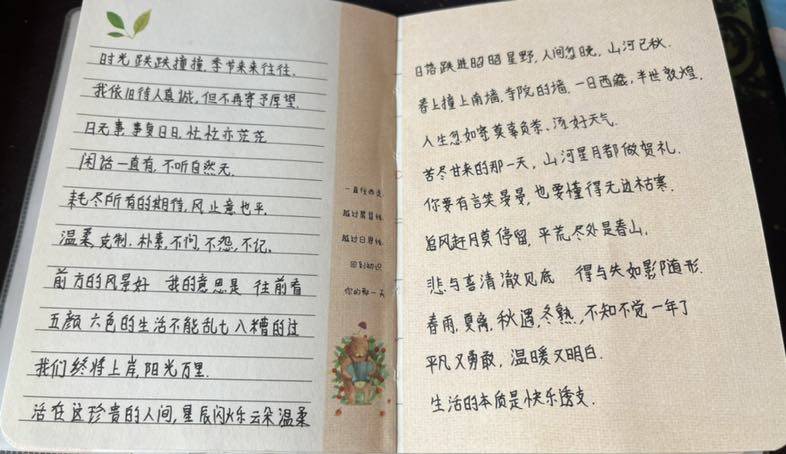 时光跌跌撞撞,季节来来往往.
我依旧待人真诚,但不再寄予厚望.
日无事事复日日,忙忙亦茫茫
闲话一直有,不听自然无.
耗尽所有的期待,风止意也平.
温柔克制.朴素,不问,不怨,不记.
前方的风景好 我的意思是 往前看
五颜六色的生活不能乱七八糟的过
我们终将上岸,阳光万里.
活在这珍贵的人间,星辰闪烁云朵温柔
一直往西走
越过黑昼线
越过日界线
回到初识
你的那一天
日落跌进昭昭星野,人间忽晚,山河已秋.
春上撞上南墙.寺院的墙.一日西藏,半世敦煌.
人生忽如寄莫辜负茶、汤、好天气.
苦尽甘来的那一天,山河星月都做贺礼.
你要有言笑晏晏,也要懂得无边枯寒.
追风赶月莫停留,平荒尽处是春山.
悲与喜清澈见底 得与失如影随形.
春雨,夏离,秋遇,冬熟,不知不觉一年了
平凡又勇敢,温暖又明白.
生活的本质是快乐透支.